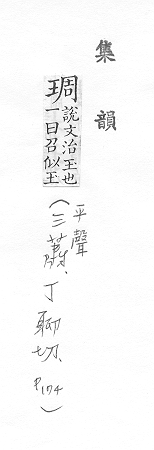 集韻
琱
說文治玉也
一曰召似玉
平聲
（三蕭、丁聊切. P174）